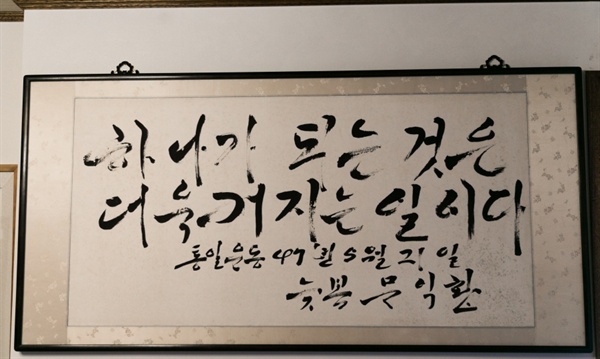 하나가 되는 것은
더욱 커지는 일이다
통일운동 47년 5월 21일
늦봄 문익환